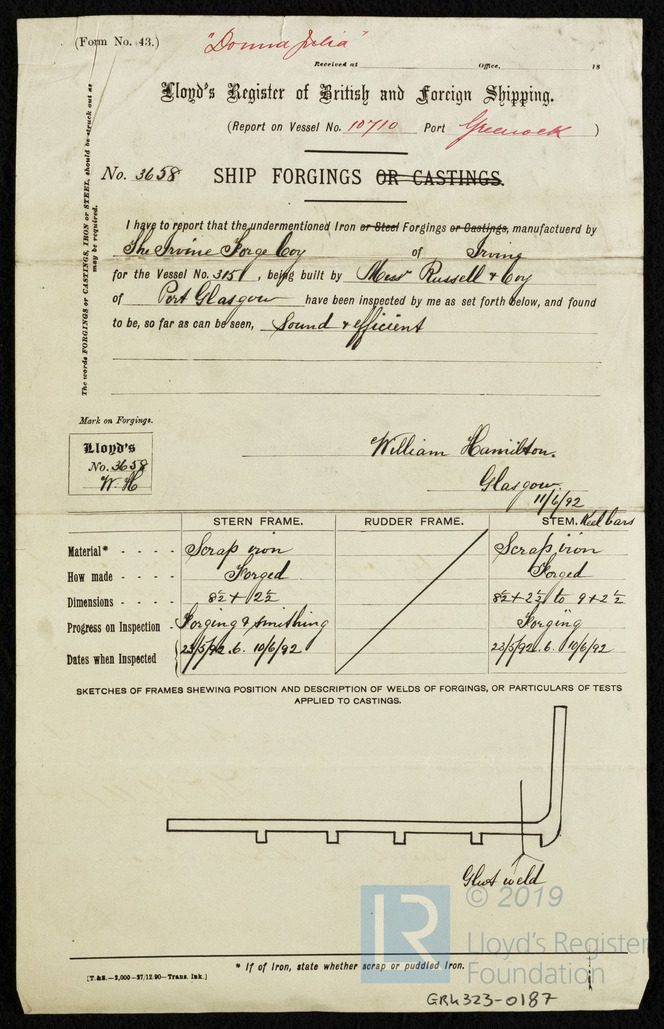 (Form No. 43.)
"Donna Julia"
Received at Office, 18
Lloyd's Register of British and Foreign Shipping.
(Report on Vessel No. 10710 Port Greenock )
No. 3658 SHIP FORGINGS OR CASTINGS.
The words FORGINGS or CASTINGS, IRON or STEEL, should be struck out as
may be required.
I have to report that the undermentioned Iron or Steel Forgings or Castings, manufactuerd by
The Irvine Forge Coy of Irvine
for the Vessel No. 315 , being built by Messrs Russell & Coy
of Port Glasgow have been inspected by me as set forth below, and found
to be, so far as can be seen, Sound & efficient
Mark on Forgings.
Lloyd's
No. 3658
W. H
William Hamilton.
Glasgow
11/6/92
STERN FRAME. RUDDER FRAME. STEM. Keel bars
Material* - - - - Scrap iron Scrap iron
How made - - - - Forged Forged
Dimensions - - - - 8½ + 2½ 8½ + 2½ to 9 + 2½
Progress on Inspection - Forging & Smithing Forging
Dates when Inspected 23/5/92 . 6 . 10/6/92 23/5/92 . 6 . 10/6/92
SKETCHES OF FRAMES SHEWING POSITION AND DESCRIPTION OF WELDS OF FORGINGS, OR PARTICULARS OF TESTS
APPLIED TO CASTINGS.
Glut weld
© 2019
LR
Lloyd's Register
Foundation
* If of Iron, state whether scrap or puddled Iron.
[T.&S.—2,000—27/12/90—Trans. Ink.]
GRK323-0187